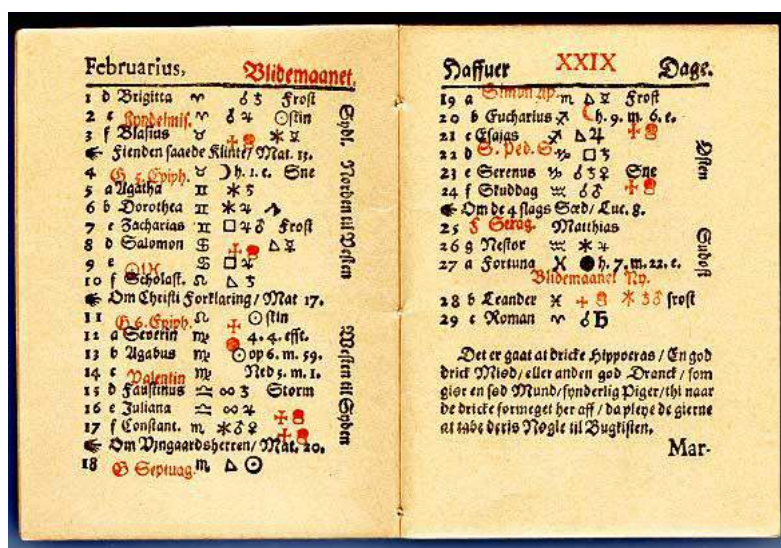 Februarius, Blidemaanet.
1 d Brigitta ♈ ☌ ♄ Frost
2 e Kyndelmis. ♈ ☌ ♃ ☉skin
3 f Blasius ♉ ⚹ ☿
Fienden saaede Klinte/ Mat. 13.
4 G 5. Epiph. ♉ ☽ h. 1. e. Sne
5 a Agatha ♊ ⚹ ♄
6 b Dorothea ♊ ⚹ ♃
7 c Zacharias ♊ □ ♃ ♂ Frost
8 d Salomon ♋ △ ☿
9 e ♋ □ ♃
10 f Scholast. ♌ △ ♄
Om Christi Forklaring/ Mat 17.
11 G 6. Epiph. ♌ ☉skin
12 a Severin ♍ 4. 4. efft.
13 b Agabus ♍ ☉ op 6. m. 59.
14 c Valentin ♍ Ned 5. m. 1.
15 d Faustinus ♎ ☍ ♄ Storm
16 e Juliana ♎ ☍ ♃
17 f Constant. ♏ ⚹ ♂ ♀
Om Vjngaardsherren/ Mat. 20.
18 G Septuag. ♏ △ ☉
Sydl. Norden til Vesten
Vesten til Synden
Haffuer XXIX Dage.
19 a Simon Ap. ♏ △ ☿ Frost
20 b Eucharius ♐ ☾ h. 9. m. 6. e.
21 c Esajas ♐ △ ♃
22 d S. Ped. S. ♑ □ ♄
23 e Serenus ♑ ☌ ♄ ♀ Sne
24 f Skuddag ♒ ☌ ♂
Om de 4 slags Sæd/ Luc. 8.
25 Matthias
26 g Nestor ♒ ⚹ ♃
27 a Fortuna ♓ ● h. 7. m. 22. e.
Blidemaanet Ny.
28 b Leander ♓ ⚹ ♄ ♂ frost
29 c Roman ♈ ☌
Østen
Sudost
Det er gaat at dricke Hippocras / En god
drick Miød/ eller anden god Dranck / som
giør en sød Mund/ synderlig Piger/ thi naar
de dricke formeget her aff / da pleye de gierne
at tabe deris Nøgle til Bugkisten.
Mar-